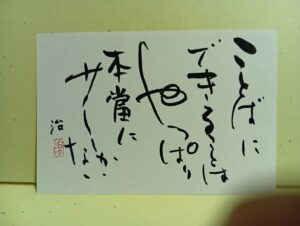 ことばに
できることは
やっぱり
本當に
少ししかない
治